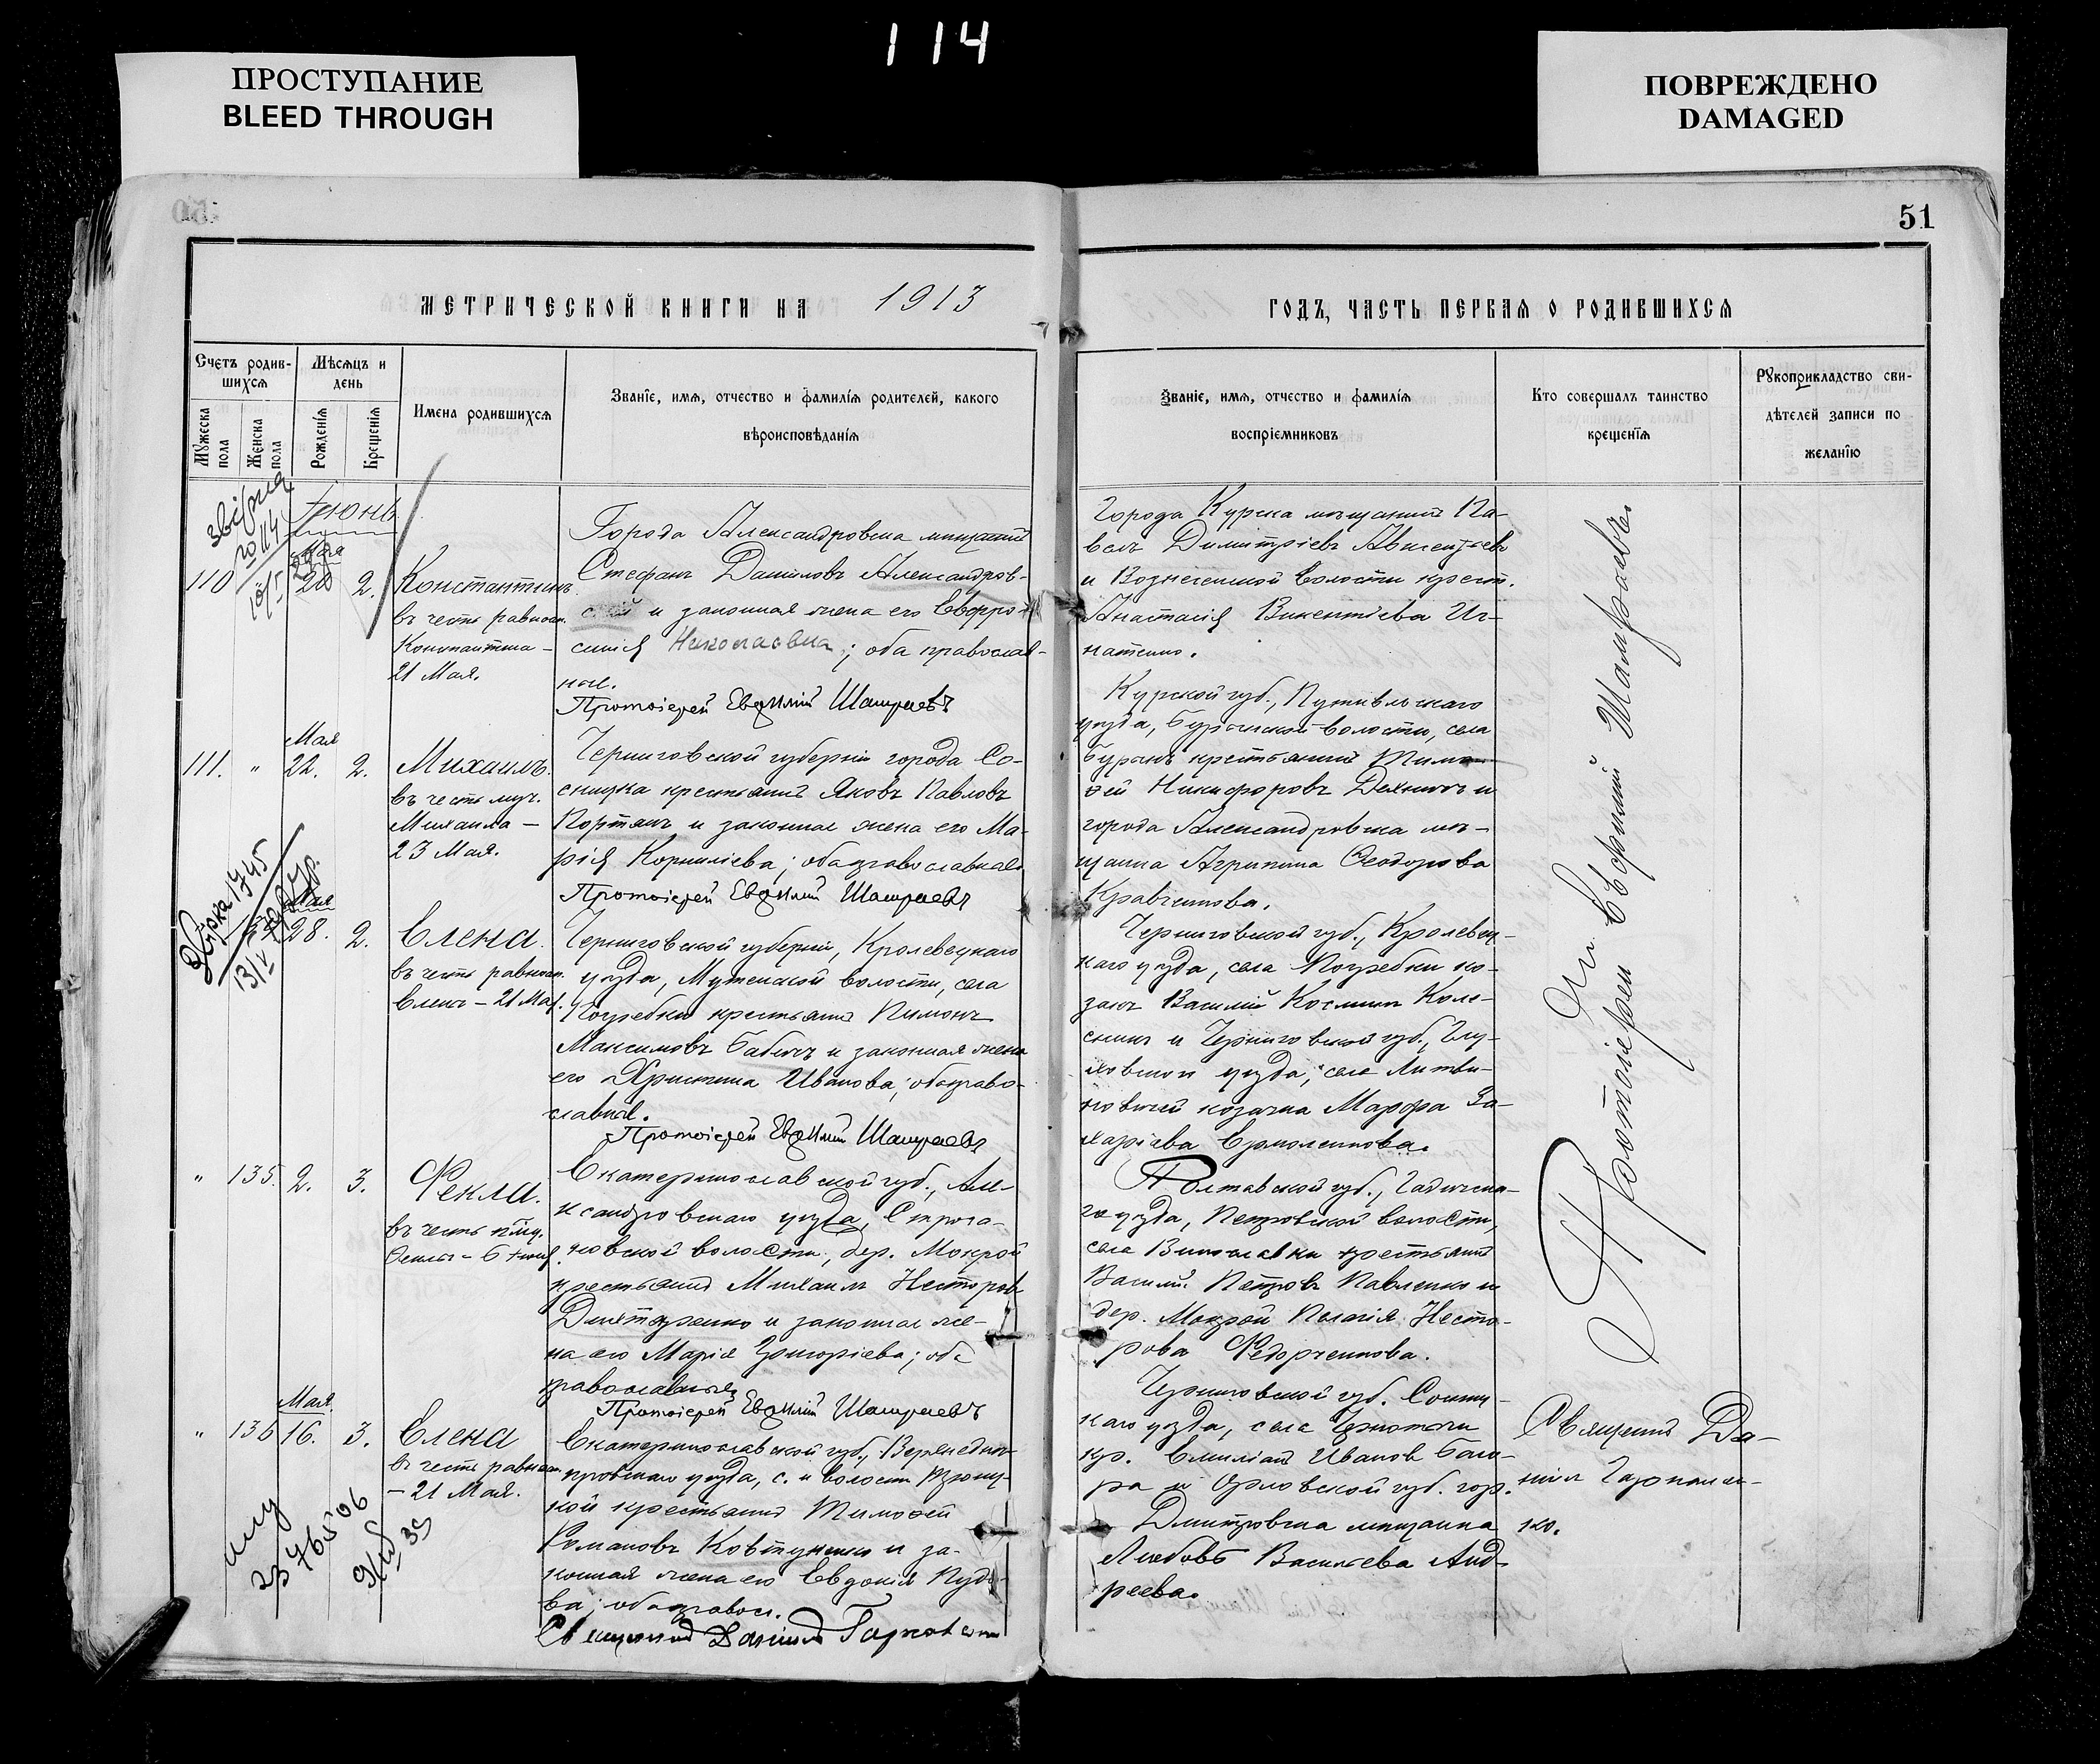 114
ПРОСТУПАНИЕ
BLEED THROUGH
ПОВРЕЖДЕНО
DAMAGED
51
МЕТРИЧЕСКОЙ КНИГИ НА 1913
ГОДЪ, ЧАСТЬ ПЕРВАЯ О РОДИВШИХСЯ
Счетъ родив-
шихся
Мужеска пола
Женска пола
Мѣсяцъ и
день
Рожденїя
Крещенїя
Имена родившихся
Званїе, имя, отчество и фамилїя родителей, какого
вѣроисповѣданїя
Званїе, имя, отчество и фамилїя
воспрїемниковъ
Кто совершалъ таинство
крещенїя
Рукоприкладство сви-
дѣтелей записи по
желанїю
Іюнь
Мая
110 28 2. Константинъ
въ честь равноап.
Константина –
21 Мая.
Города Александровска мѣщанинъ
Стефанъ Даніиловъ Александров-
и законная жена его Евфро-
синія Николаевна; оба православ-
ные.
Протоіерей Евѳимій Шамраевъ
Города Курска мѣщанинъ Па-
велъ Димитріевъ
и Вознесенской волости крест.
Анастасія Викентіева Иг-
натенко.
Мая
111. " 22. 2. Михаилъ.
въ честь муч.
Михаила –
23 Мая.
Черниговской губерніи города Со-
сницка крестьянинъ Яковъ Павловъ
Портянъ и законная жена его Ма-
рія Корниліева; оба православные
Протоіерей Евѳимій Шамраевъ
Курской губ., Путивльскаго
уѣзда, Бурынской волости, села
Бурынь крестьянинъ Тимо-
ѳей Никифоровъ и
города Александровска мѣ-
щанка Агрипина Ѳеодорова
Кравченкова.
Мая
28. 2. Елена.
въ честь равноап.
Елены – 21 Мая.
Черниговской губерніи, Кролевецкаго
уѣзда, Мутинской волости, села
Погребки крестьянинъ Пимонъ
Максимовъ Бабичъ и законная жена
его Христина Иванова; оба право-
славные.
Протоіерей Евѳимій Шамраевъ
Черниговской губ., Кролевец-
каго уѣзда, села Погребки ко-
закъ Василій Косминъ Коле-
сникъ и Черниговской губ., Глу-
ховскаго уѣзда, села Литви-
новичей козачка Марфа За-
харіева Ермоленкова.
" 135. 2. 3. Ѳекла.
въ честь
Ѳеклы – 6 Іюня.
Екатеринославской губ., Але-
ксандровскаго уѣзда,
волости, дер. Мокрой
крестьянинъ Михаилъ Несторовъ
Дмитренко и законная же-
на его Марія Григоріева; оба
православные.
Протоіерей Евѳимій Шамраевъ
Полтавской губ., Гадячска-
го уѣзда, Петровской волости,
села крестьянинъ
Василій Петровъ Павленко и
дер. Мокрой Пелагія Несто-
рова Федорченкова.
Протоіерей Евфимій Шамраевъ.
Мая.
" 136 16. 3. Елена
въ честь равноап.
– 21 Мая.
Екатеринославской губ., Верхнеднѣ-
провскаго уѣзда, с. и волости
крестьянинъ Тимоѳей
Романовъ Ковтуненко и за-
конная жена его Евдокія
ва; оба правосл.
Священникъ Даніилъ
Черниговской губ. Сосниц-
каго уѣзда, села
кр. Емиліанъ Ивановъ
ра и Орловской губ. гор.
Дмитровска мѣщанка
Любовь Васильева Анд-
реева.
Священникъ Да-
ніилъ
ко.